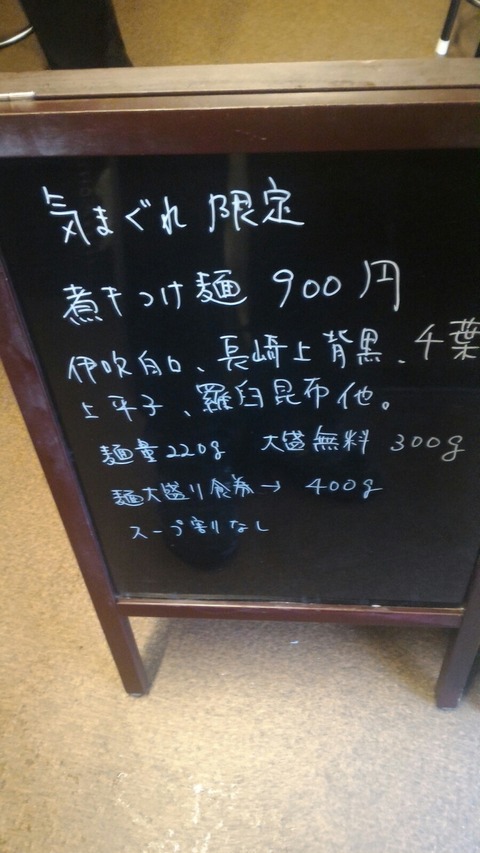 気まぐれ限定
煮干つけ麺 900円
伊吹白口、長崎上背黒、千葉
上平子、羅臼昆布他。
麺量220g 大盛無料 300g
麺大盛り食券→ 400g
スープ割りなし